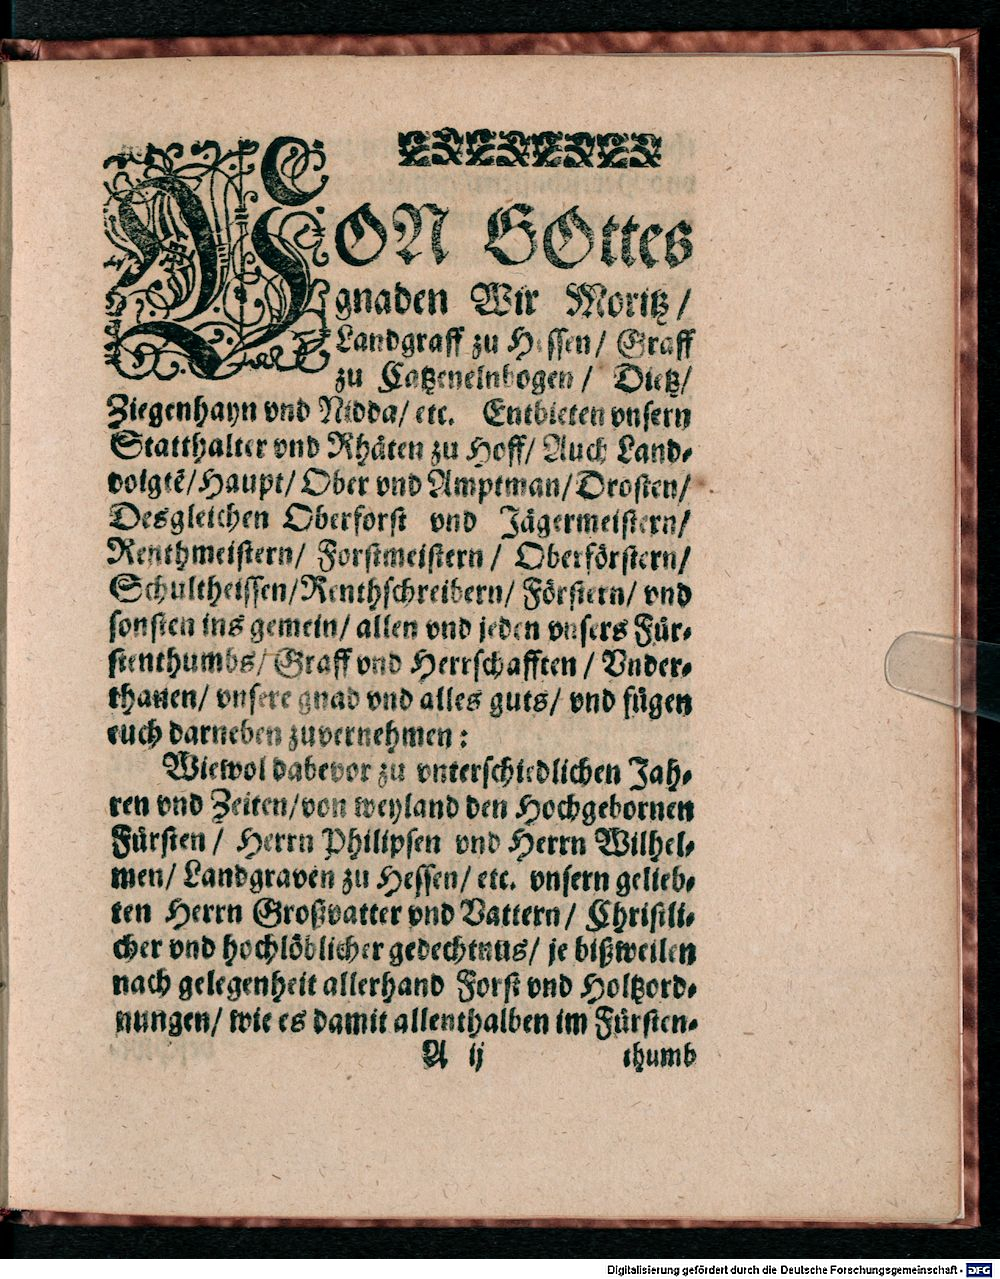 VON GOttes
gnaden Wir Moritz /
Landgraff zu Hessen / Graff
zu Catzenelnbogen / Dietz /
Ziegenhayn vnd Nidda / etc. Entbieten vnsern
Statthalter vnd Rhäten zu Hoff / Auch Land-
voigtē / Haupt / Ober vnd Amptman / Drosten /
Desgleichen Oberforst vnd Jägermeistern /
Renthmeistern / Forstmeistern / Oberförstern /
Schultheissen / Renthschreibern / Förstern / vnd
sonsten ins gemein / allen vnd jeden vnsers Für-
stenthumbs / Graff vnd Herrschafften / Vnder-
thanen / vnsere gnad vnd alles guts / vnd fügen
euch darneben zuvernehmen :
Wiewol dabevor zu vnterschiedlichen Jah-
ren vnd Zeiten / von weyland den Hochgebornen
Fürsten / Herrn Philipsen vnd Herrn Wilhel-
men / Landgraven zu Hessen / etc. vnsern gelieb-
ten Herrn Großvatter vnd Vattern / Christli-
cher vnd hochlöblicher gedechtnus / je bißweilen
nach gelegenheit allerhand Forst vnd Holtzord-
nungen / wie es damit allenthalben im Fürsten-
A ij thumb
Digitalisierung gefördert durch die Deutsche Forschungsgemeinschaft - DFG